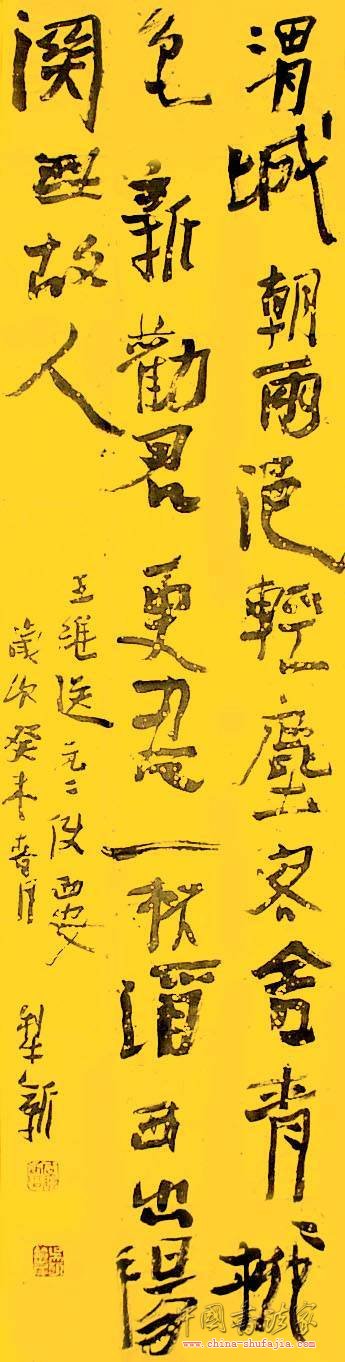 渭城朝雨浥輕塵客舍青〻柳
色新勸君更盡一杯酒西出陽
關無故人
王維送元二使西安
歲次癸未春月
新
中國書法家
www.china-shufajia.com